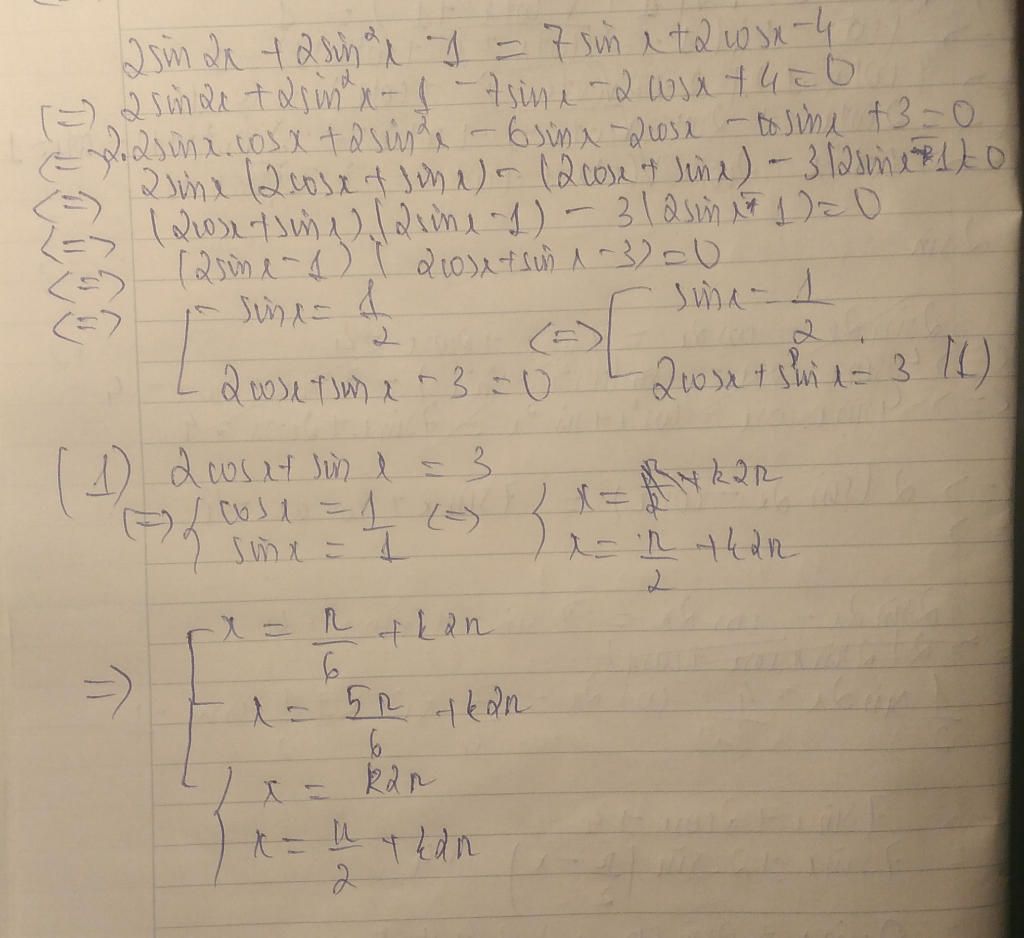 2sin2x + 2sin²x - 1 = 7sinx + 2cosx - 4
<=> 2sin2x + 2sin²x - 1 - 7sinx - 2cosx + 4 = 0
<=> 2.2sinx.cosx + 2sin²x - 6sinx - 2cosx - sinx + 3 = 0
<=> 2sinx(2cosx + sinx) - (2cosx + sinx) - 3(2sinx - 1) = 0
<=> (2cosx + sinx).(2sinx - 1) - 3(2sinx - 1) = 0
<=> (2sinx - 1)(2cosx + sinx - 3) = 0
<=> [ sinx = 1/2 <=> [ sinx = 1/2
2cosx + sinx - 3 = 0 2cosx + sinx = 3 (1)
(1) 2cosx + sinx = 3
<=> { cosx = 1 <=> { x = k2π
sinx = 1 x = π/2 + k2π
=> [ x = π/6 + k2π
x = 5π/6 + k2π
{ x = k2π
x = π/2 + k2π